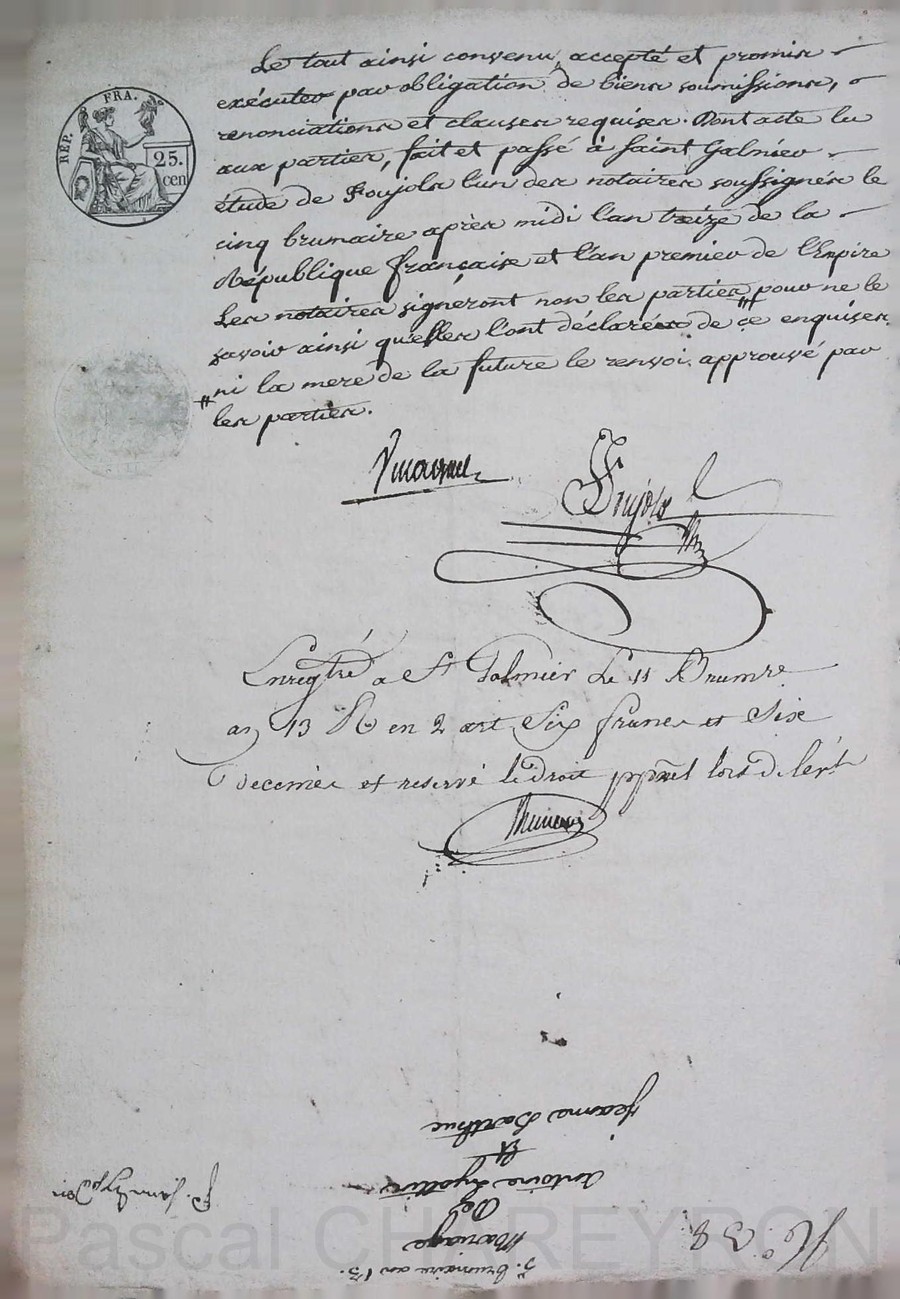 REP. FRA.
25.
cen
Le tout ainsi convenu, accepté et promis
exécuter par obligation de biens soumissions,
renonciations et clauses requises. Dont acte lu
aux parties, fait et passé à Saint Galmier
étude de Foujols l'un des notaires soussignés le
cinq brumaire après midi l'an treize de la
République française et l'an premier de l'Empire
Les notaires signeront non les parties pour ne le
savoir ainsi qu'elles l'ont déclarées de ce enquises
ni la mere de la future le renvoi approuvé par
les parties.
Foujols
Enregtré a St Galmier Le 11 Brumre
an 13 en 2 art Six francs et Six
decimes et reservé le droit lors de
N°. 38.
5. brumaire an 13.
Mariage
De
Antoine
Et
Jeanne
Pascal CHAREYRON